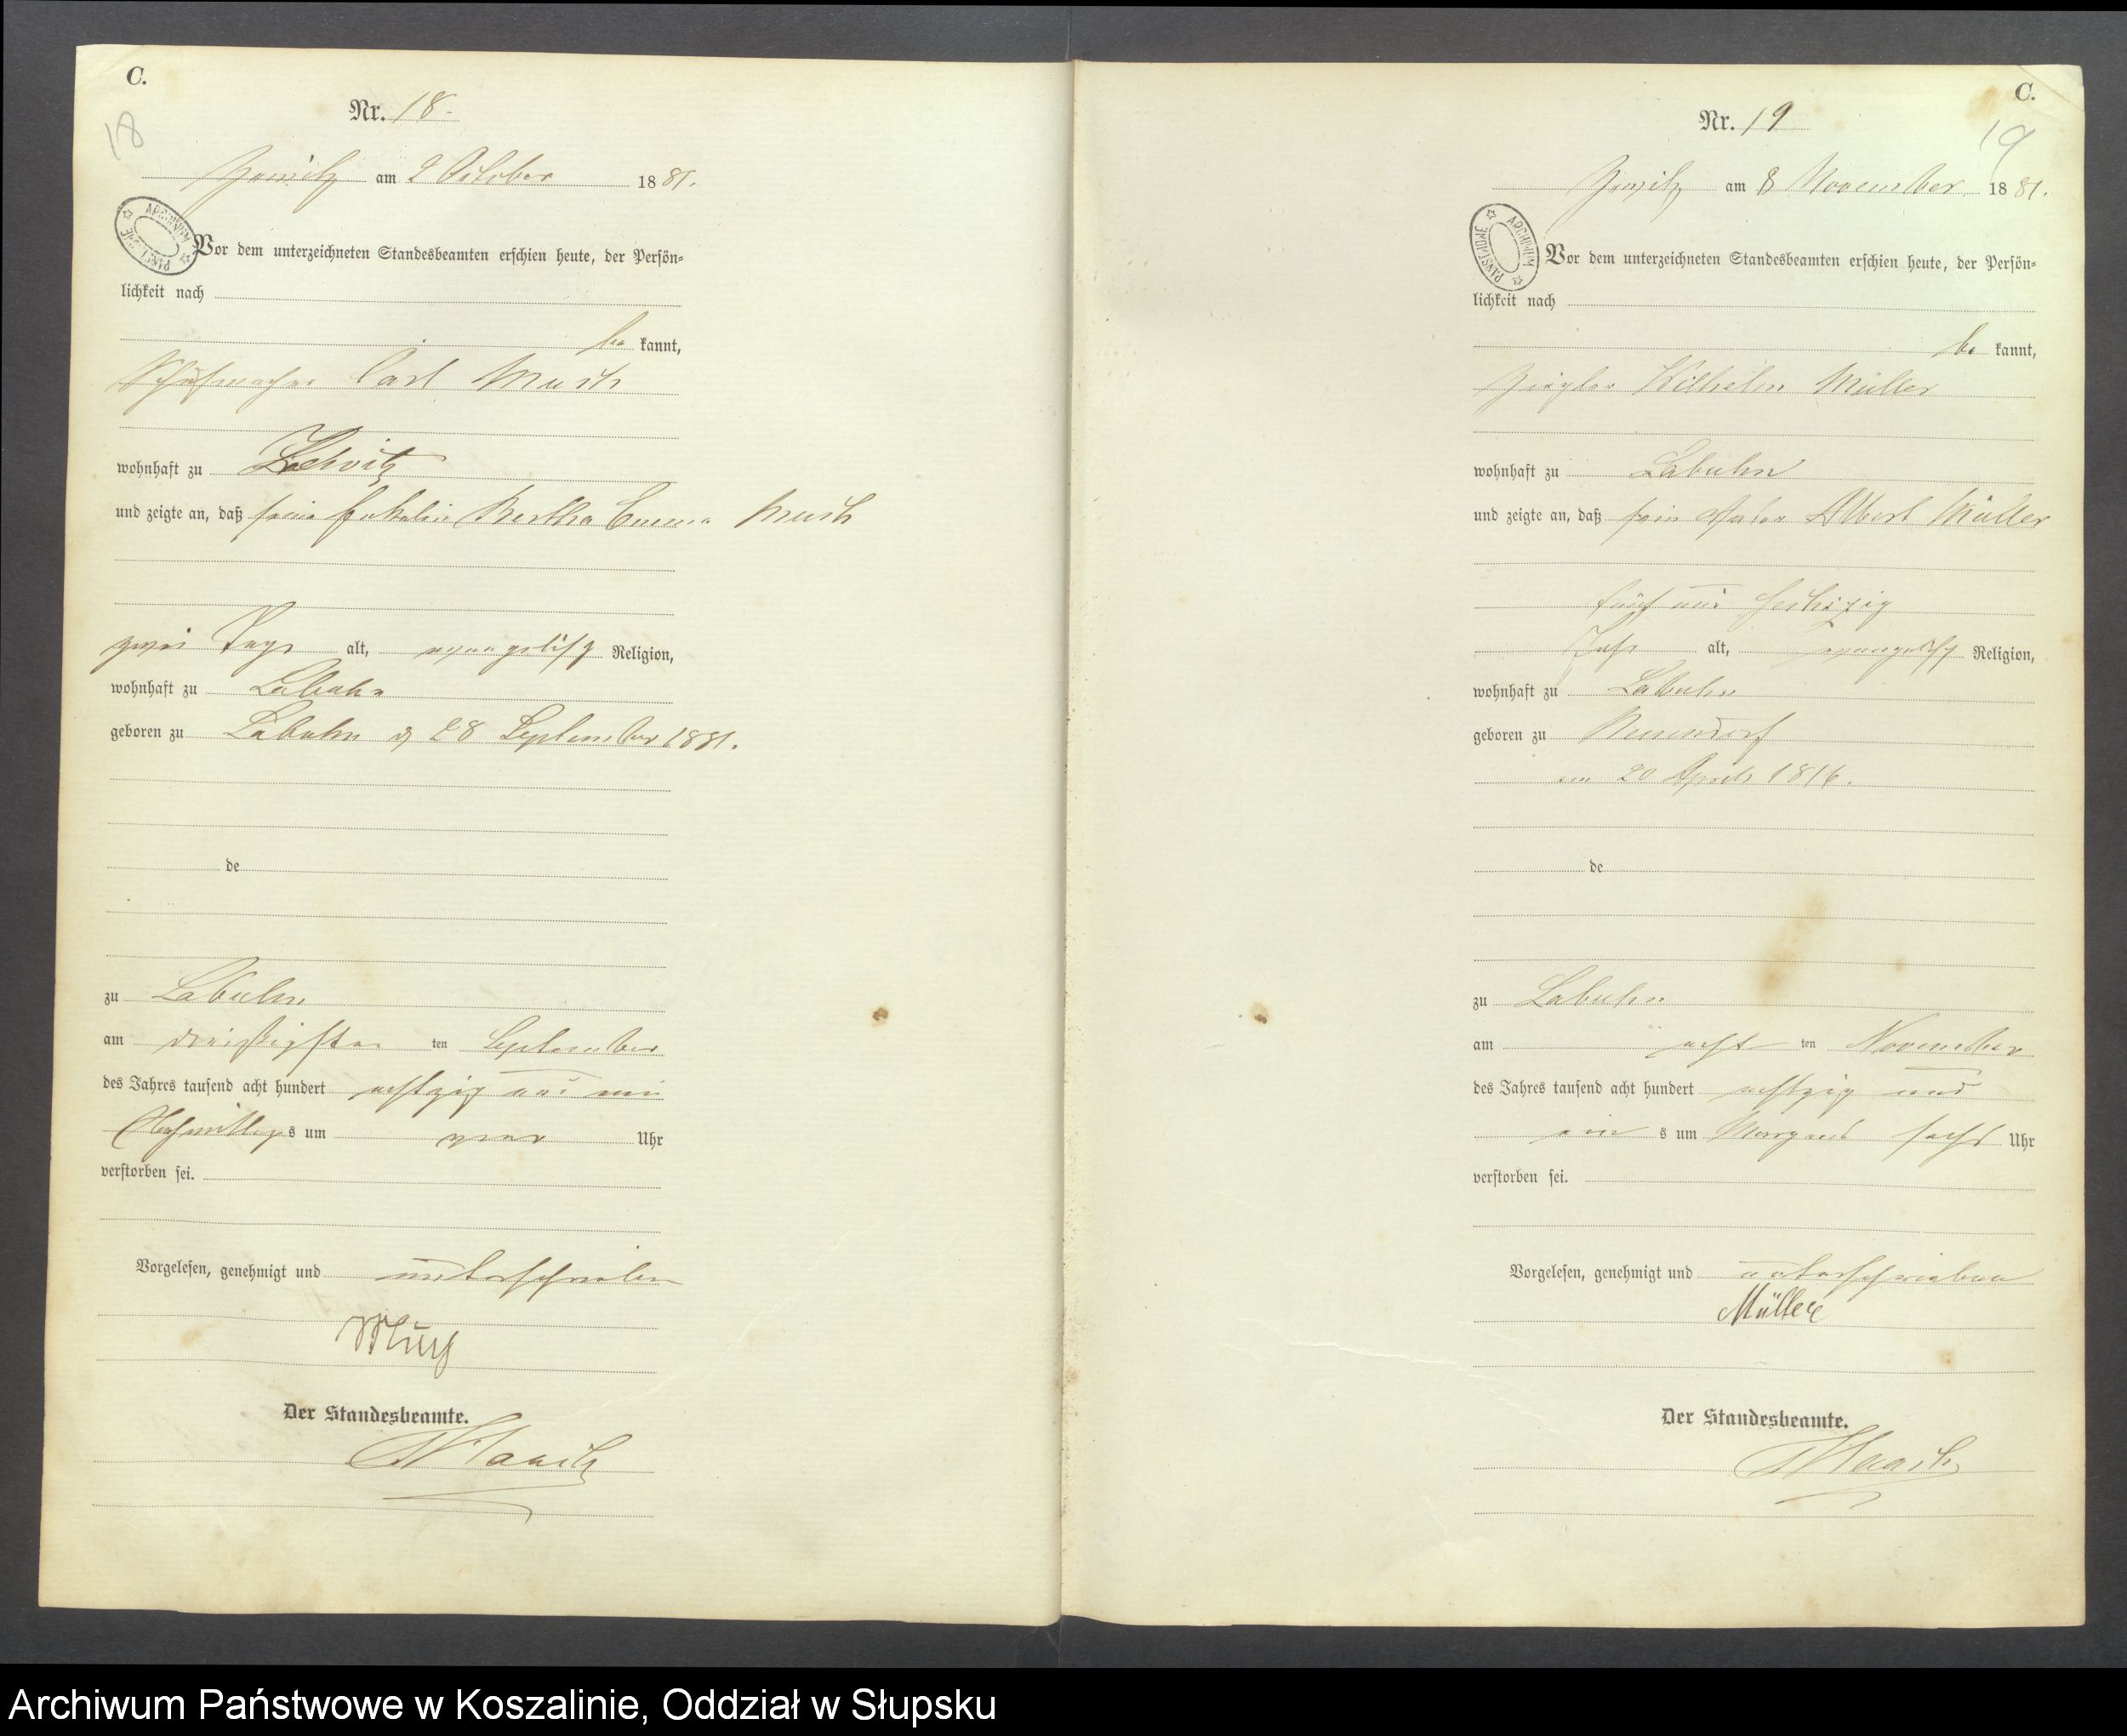 C.
Nr. 18.
18
Zewitz am 2 October 1881.
ARCHIWUM PAŃSTWOWE
Vor dem unterzeichneten Standesbeamten erschien heute, der Persön-
lichkeit nach
be kannt,
Schuhmacher Carl
wohnhaft zu
und zeigte an, daß seine Bertha Emma
zwei Tage alt, evangelisch Religion,
wohnhaft zu Labuhn
geboren zu Labuhn d 28 September 1881.
de
zu Labuhn
am dreißigsten ten September
des Jahres tausend acht hundert achtzig und ein
Nachmittags um vier Uhr
verstorben sei.
Vorgelesen, genehmigt und unterschrieben
Der Standesbeamte.
C.
Nr. 19
19
Zewitz am 8 November 1881.
ARCHIWUM PAŃSTWOWE
Vor dem unterzeichneten Standesbeamten erschien heute, der Persön-
lichkeit nach
be kannt,
Ziegler Wilhelm Müller
wohnhaft zu Labuhn
und zeigte an, daß sein Vater Albert Müller
fünf und sechszig
Jahr alt, evangelisch Religion,
wohnhaft zu Labuhn
geboren zu Neuendorf
am 20 April 1816.
de
zu Labuhn
am acht ten November
des Jahres tausend acht hundert achtzig und
ein s um Morgens sechs Uhr
verstorben sei.
Vorgelesen, genehmigt und unterschrieben
Müller
Der Standesbeamte.
Archiwum Państwowe w Koszalinie, Oddział w Słupsku